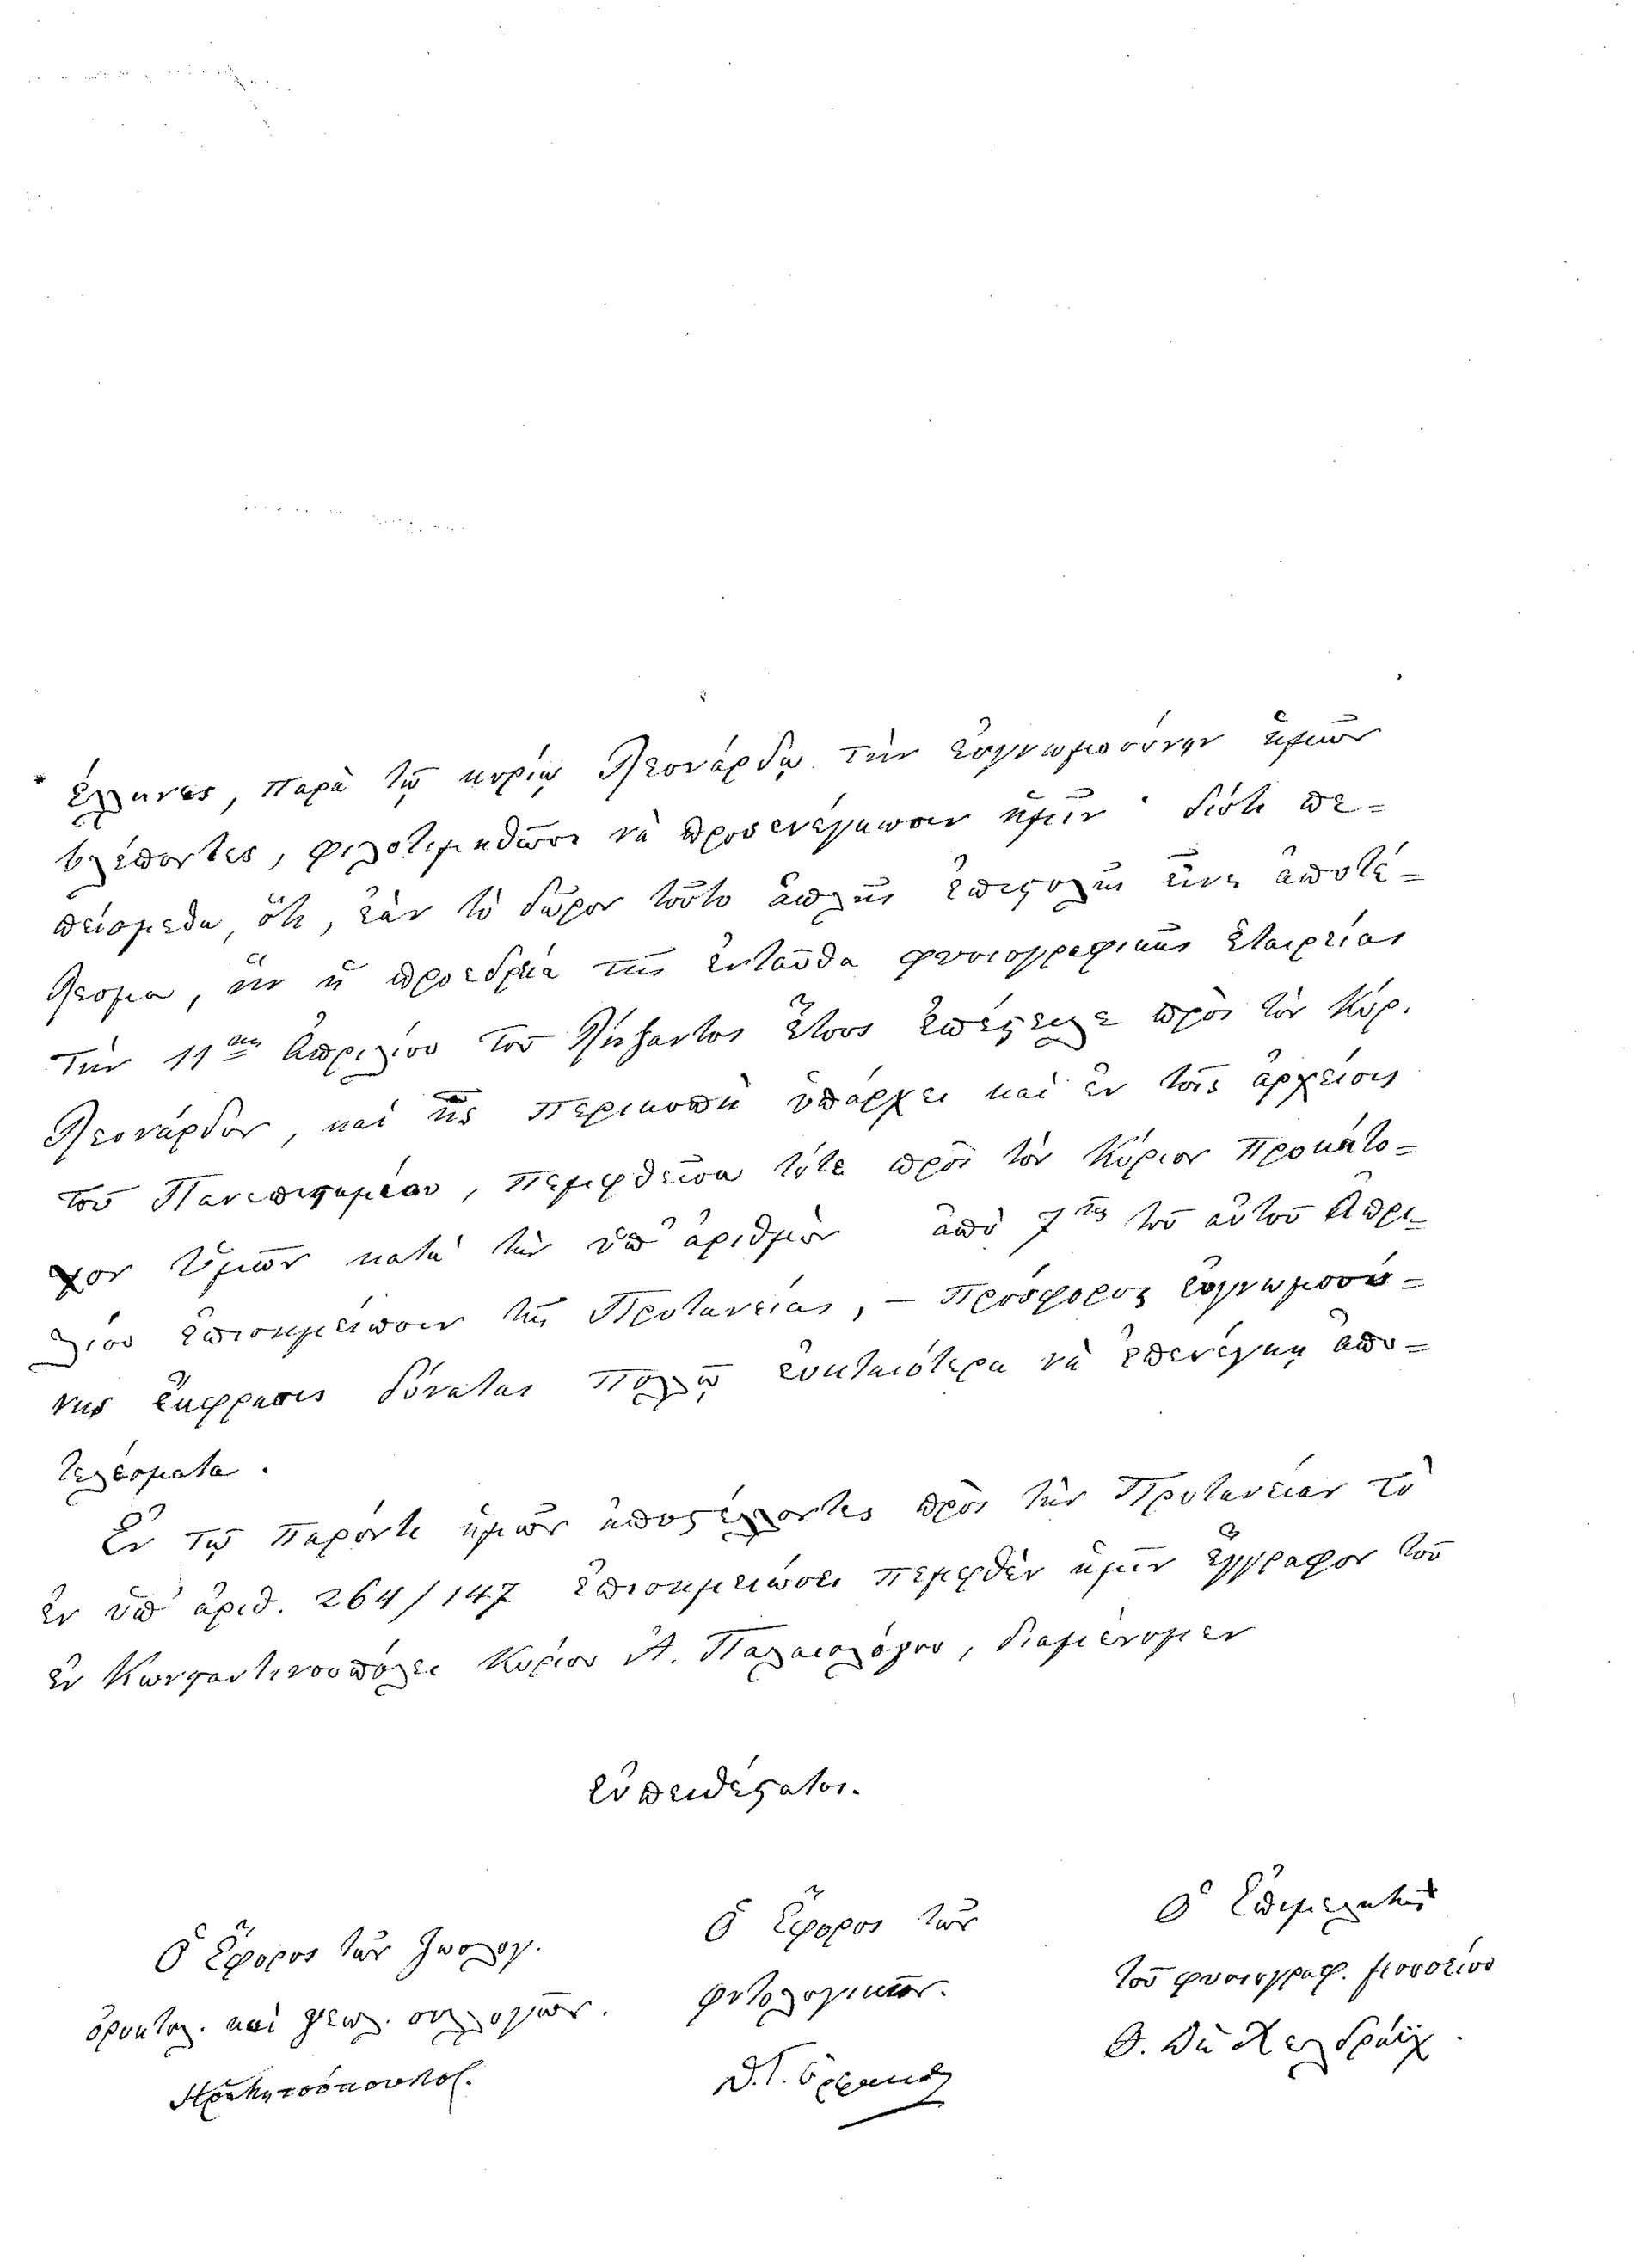 ἕλληνες, παρὰ τῷ κυρίῳ Λεονάρδῳ τὴν εὐγνωμοσύνην ἡμῶν
βλέποντες, φιλοτιμηθῶσι νὰ προσενέγκωσιν ἡμῖν· διότι πε-
πείσμεθα, ὅτι, ἐὰν τὸ δῶρον τοῦτο ἁπλῆς ἐπιστολῆς εἶνε ἀποτέ-
λεσμα, ἣν ἡ προεδρεία τῆς ἐνταῦθα φυσιογραφικῆς ἑταιρείας
τὴν 11ην Ἀπριλίου τοῦ λήξαντος ἔτους ἐπέστειλε πρὸς τὸν Κύρ.
Λεονάρδον, καὶ ἧς περικοπὴ ὑπάρχει καὶ ἐν τοῖς ἀρχείοις
τοῦ Πανεπιστημίου, πεμφθεῖσα τότε πρὸς τὸν Κύριον προκάτο-
χον Ὑμῶν κατὰ τὴν ὑπ' ἀριθμὸν ἀπὸ 7ης τοῦ αὐτοῦ Ἀπρι-
λίου ἐπισημείωσιν τῆς Πρυτανείας, – πρόσφορος εὐγνωμοσύ-
νης ἔκφρασις δύναται πολλῷ εὐκταιότερα νὰ ἐπενέγκῃ ἀπο-
τελέσματα.
Ἐν τῷ παρόντι ἡμῶν ἀποστέλλοντες πρὸς τὴν Πρυτανείαν τὸ
ἐν ὑπ' ἀριθ. 264/147 ἐπισημειώσει πεμφθὲν ἡμῖν ἔγγραφον τοῦ
ἐν Κωνσταντινουπόλει Κυρίου Α. Παλαιολόγου, διαμένομεν
εὐπειθέστατοι.
Ὁ Ἔφορος τῶν ζωολογ.
ὀρυκτολ. καὶ γεωλ. συλλογῶν.
Ὁ Ἔφορος τῶν
φυτολογικῶν.
Θ. Γ. Ὀρφανίδης
Ὁ Ἐπιμελητὴς
τοῦ φυσιογραφ. μουσείου
Θ. Δὲ Χελδράϊχ.